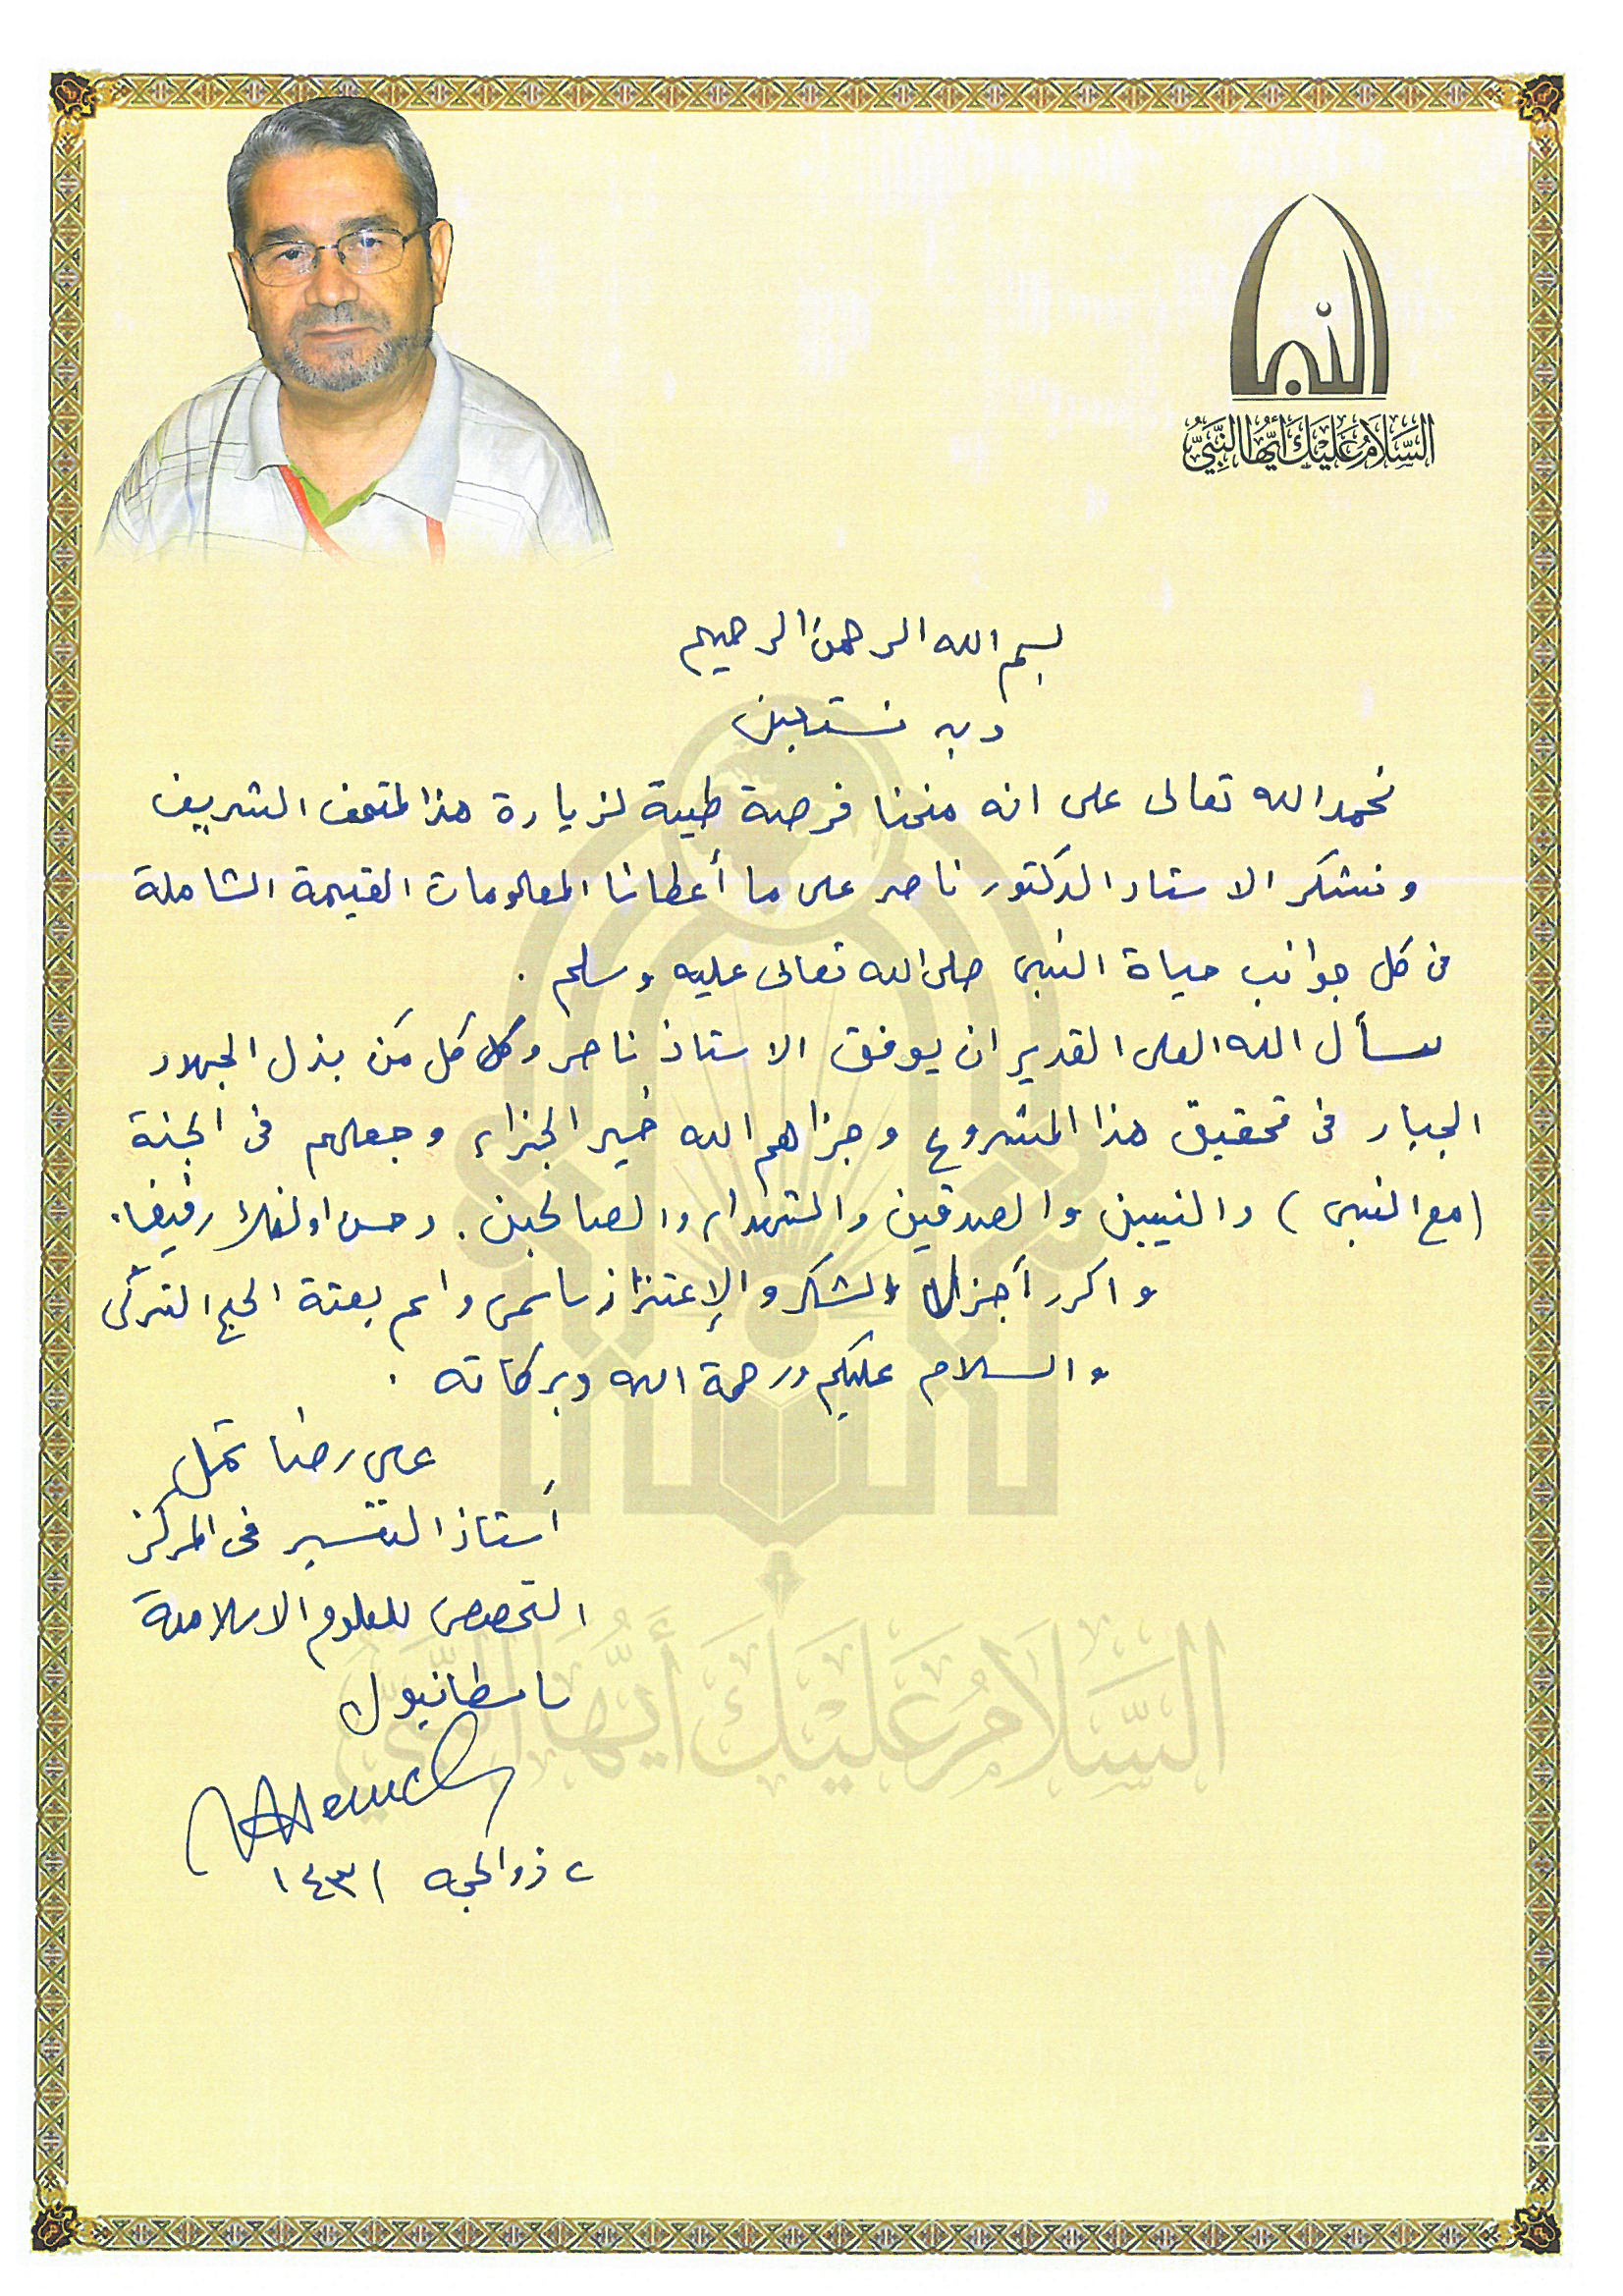 السلام عليك أيها النبي
بسم الله الرحمن الرحيم
و به نستعين
نحمد الله تعالى على انه منحنا فرصة طيبة لزيارة هذا لمتحف الشريف
و نشكر الاستاد الدكتور ناصر على ما أعطانا المعلومات القيمة الشاملة
فى كل جوانب حياة النبى صلى الله تعالى عليه وسلم .
نسأل الله العلى القدير ان يوفق الاستاذ ناصر و كل مَن بذل الجهود
الجبار فى تحقيق هذا المشروع و جزاهم الله خير الجزاء وجعلهم فى الجنة
(مع النبى) والنبيين والصدقين والشهداء والصالحين . وحسن اولئك رفيقا .
و اكرر أجزل الشكر والإعتزاز باسمى واسم بعثة الحج التركى
والسلام عليكم ورحمة الله وبركاته .
على رضا تمل
أستاذ التفسير فى المركز
التخصصى للعلوم الاسلامية
باسطانبول
٢ ذو الحجه ١٤٣١
السلام عليك أيها النبي